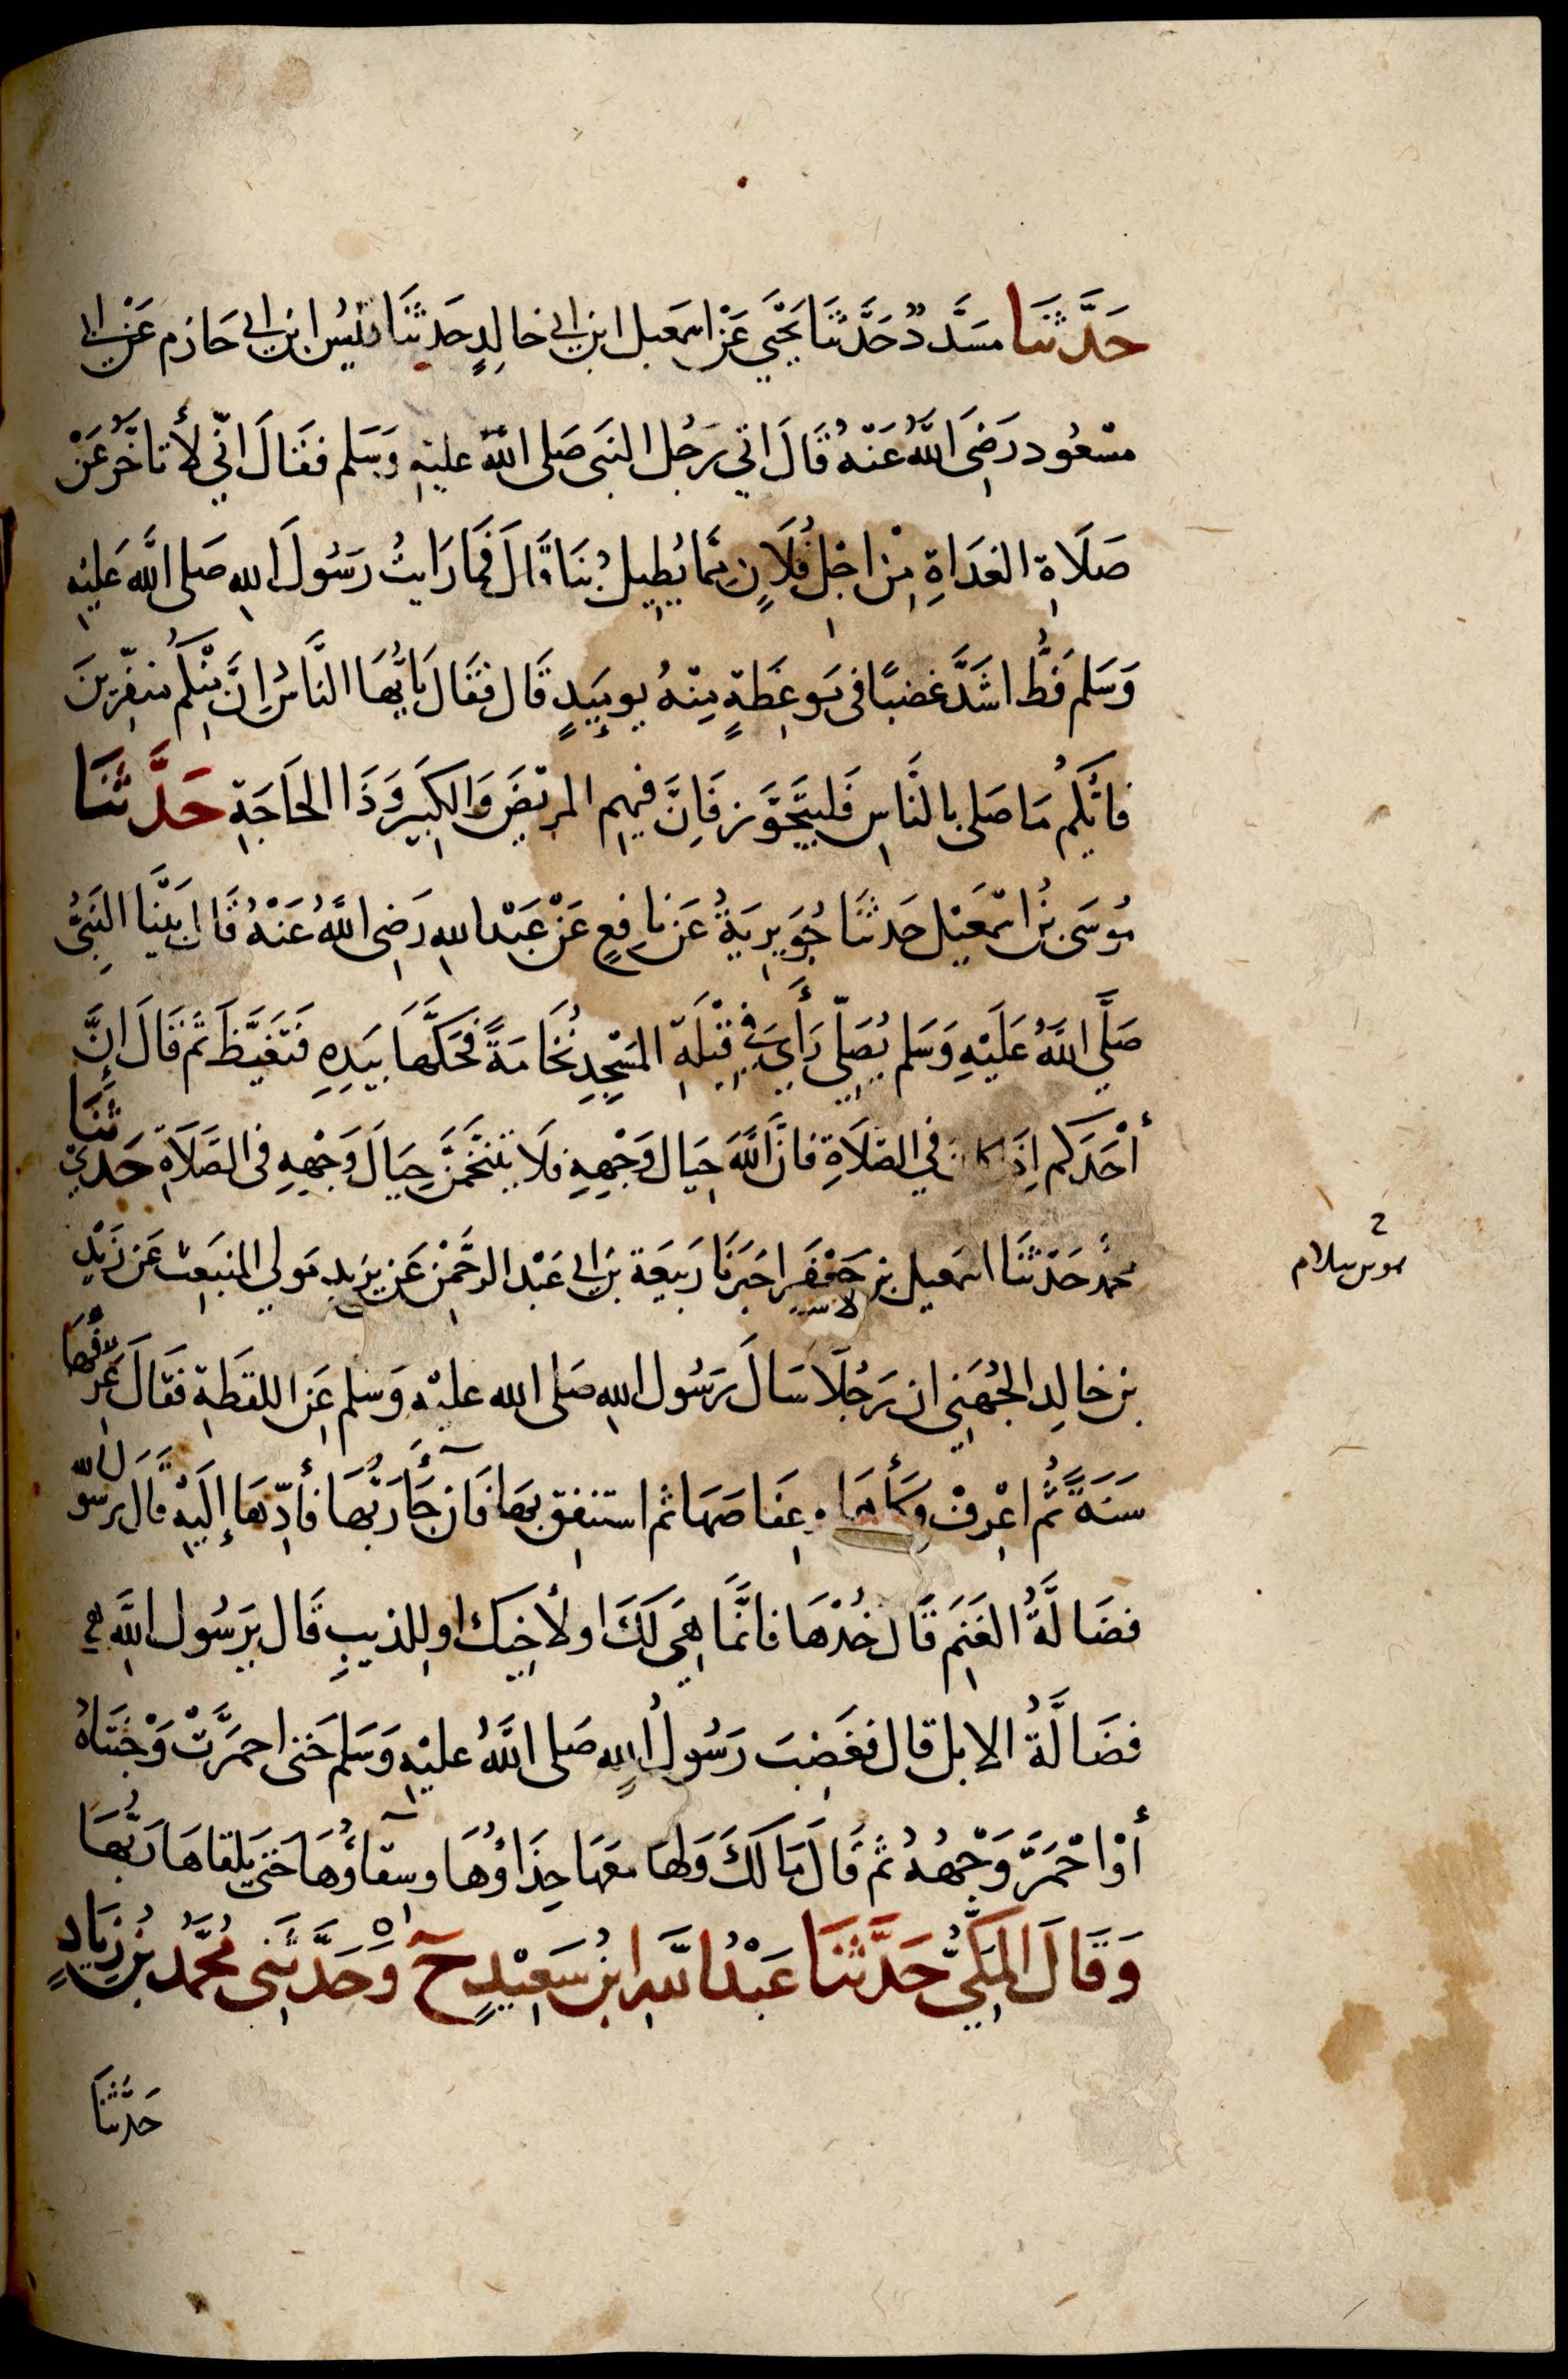 حَدَّثَنَا مسَدَّدٌ حَدَّثَنَا يَحْيَى عَنْ اسمَعيل ابن ابي خالِدٍ حَدثَنَا قيْسُ ابن ابي حَازم عَنْ ابي
مسْعُود رَضِيَ اللَّهُ عَنْهُ قَالَ اتي رَجُل النبَي صَلى اللهُ عليْهِ وَسَلم فقَالَ انّي لأَتاخَّرُ عَنْ
صَلَاةِ الغدَاةِ مِنْ اجْلِ فُلَانٍ مِمَّا يُطِيلُ بنَا قَالَ فَمَا رَايتُ رَسُولَ اللهِ صَلى اللَّه عَليْهِ
وَسَلم قَطُّ اشَدَّ غضبًا في مَوعِظَةٍ مِنْهُ يوميِذٍ قَال فقَال يَايُّهَا النَّاسُ اِنَّ مِنْكُم منفِّرينَ
فايُّكُم مَا صَلى بالنَّاسِ فَليتجَوَّز فَاِنَّ فيهِم المريْضَ وَالكِبيَر وَذَا الحَاجَةِ حَدَّثَنَا
مُوسَى بنُ اسْمَعيْل حَدثنَا جُوَيرِيَةُ عَن نافعٍ عَنْ عَبْد اللهِ رَضِيَ اللَّهُ عَنْهُ قَالَ بَيْنَا النَبيُّ
صَلَّي اللَّهُ عَلَيْهِ وَسَلم يُصَلّي رَأَيَ في قِبْلَةِ المَسْجِدِ نُخَامَةً فَحَكَّهَا بيَدِهِ فَتغَيَّظَ ثمَّ قَالَ اِنَّ
أحَدَكم اِذَا كان في الصَلَاةِ فانَّ اللَّهَ حِيَال وَجْهِهِ فلَا يَتنَخَّمَنَّ حِيَالَ وَجْهِهِ في الصَلَاةِ حَدثنَا
محمدٌ حَدَثنَا اسمَعيل بن جَعْفَرٍ اخبَرَنَا رَبيَعَة بن ابي عَبْد الرحَّمنِ عَن يزيد مَولي المنبَعِث عَن زَيْدِ
بن خالِد الجُهَنِي ان رَجُلَا سَالَ رَسُول اللهِ صَلى الله عليْهِ وَسلم عَنِ اللقطَةِ فقَالَ عَرِّفْهَا
سَنَةً ثُمَّ اعْرِفْ وكَأهَا وعِفَاصَهَا ثم استنفِق بهَا فَان جَآءَ رَبُّهَا فأدِّهَا إِلَيْهِ قَالَ يرسُولَ الله
فضَالَّةُ الغَنَم قَال خُذْهَا فانَّمَا هِيَ لَكَ او لأخِيكَ او للذيبِ قَال يرَسُول اللَّهِ
فضَالَّةُ الابل قال فغَضِبَ رَسُولُ اللهِ صَلى اللَّهُ عليْهِ وَسَلم حَتى احمَرَّتْ وَجْنَتاهُ
أوْ احْمَرَّ وَجْهُهُ ثمَّ قَالَ مَا لَكَ وَلهَا معَهَا حِذَاؤُهَا وسقآؤُهَا حَتى يَلقاهَا رَبُّهَا
وَقَالَ المَكِّيُّ حَدَّثَنَا عَبْدُ اللَّهِ ابنُ سَعِيْدٍ ح وَحَدَّثَنِي مُحَمَّدُ بنُ زِيَادٍ
حَدَّثنَا